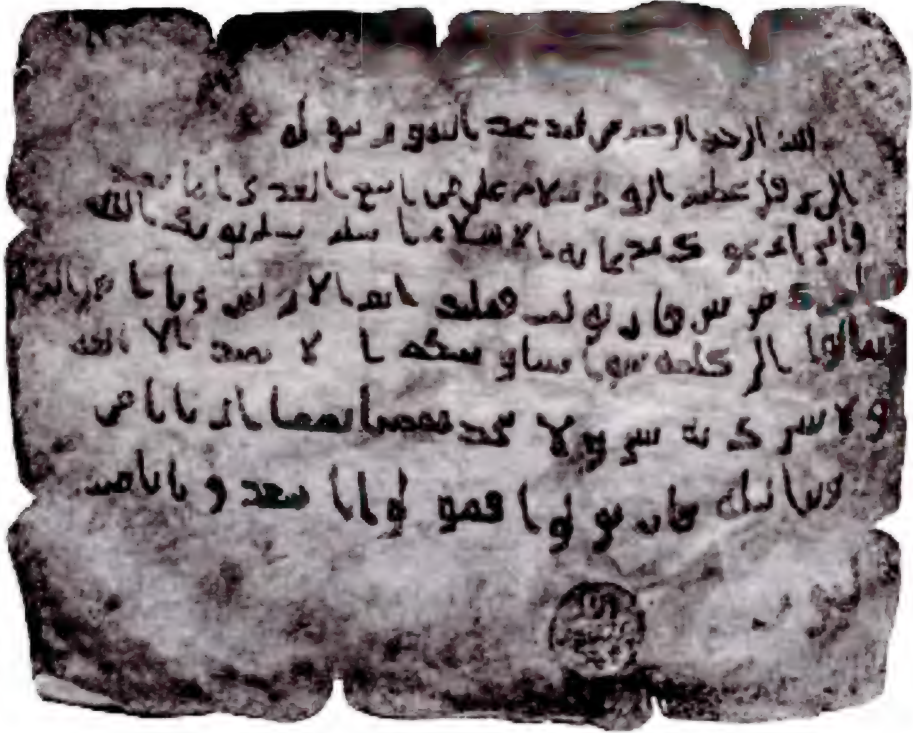 الله الرحمن الرحيم من محمد عبد الله ورسوله
الى هرقل عظيم الروم سلام على من اتبع الهدى اما بعد
فانى ادعوك بدعاية الاسلام اسلم تسلم يوتك الله
اجرك مرتين فان توليت فعليك اثم الاريسين ويا اهل
تعالوا الى كلمة سوا بيننا وبينكم الا نعبد الا الله
ولا نشرك به شيا ولا يتخذ بعضنا بعضا اربابا من
دون الله فان تولوا فقولوا اشهدوا بانا مس
لمون
الله
رسول
محمد